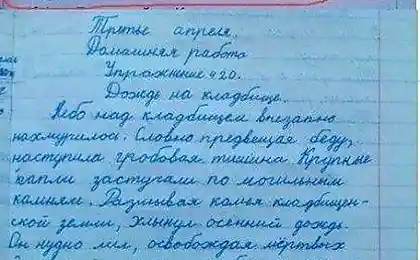 Третье апреля.
Домашняя работа
Упражнение 420.
Дождь на кладбище.
Небо над кладбищем внезапно
нахмурилось. Словно предвещая беду,
наступила гробовая тишина. Крупные
капли застучали по могильным
камням. Размывая комья кладбищен-
ской земли, хлынул осенний дождь.
Он нудно лил, освобождая мёртвых